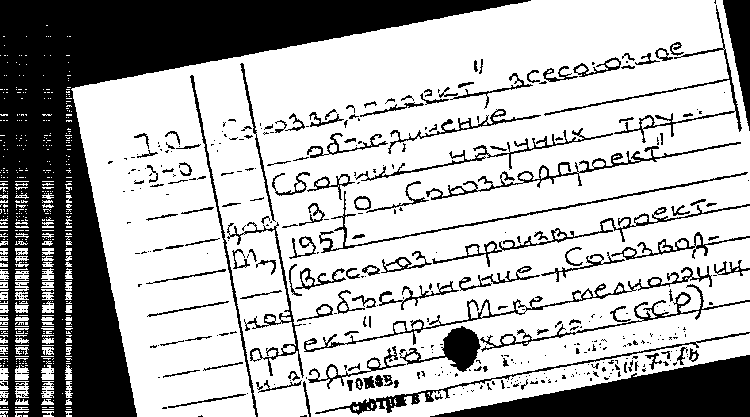 „Союзводпроект", всесоюзное
объединение.
Сборник научных тру-
дов В/О „Союзводпроект".
М., 1957-
(Всесоюз. произв. проект-
ное объединение „Союзвод-
проект" при М-ве мелиорации
и водного хоз-ва СССР).
томов,
смотри в